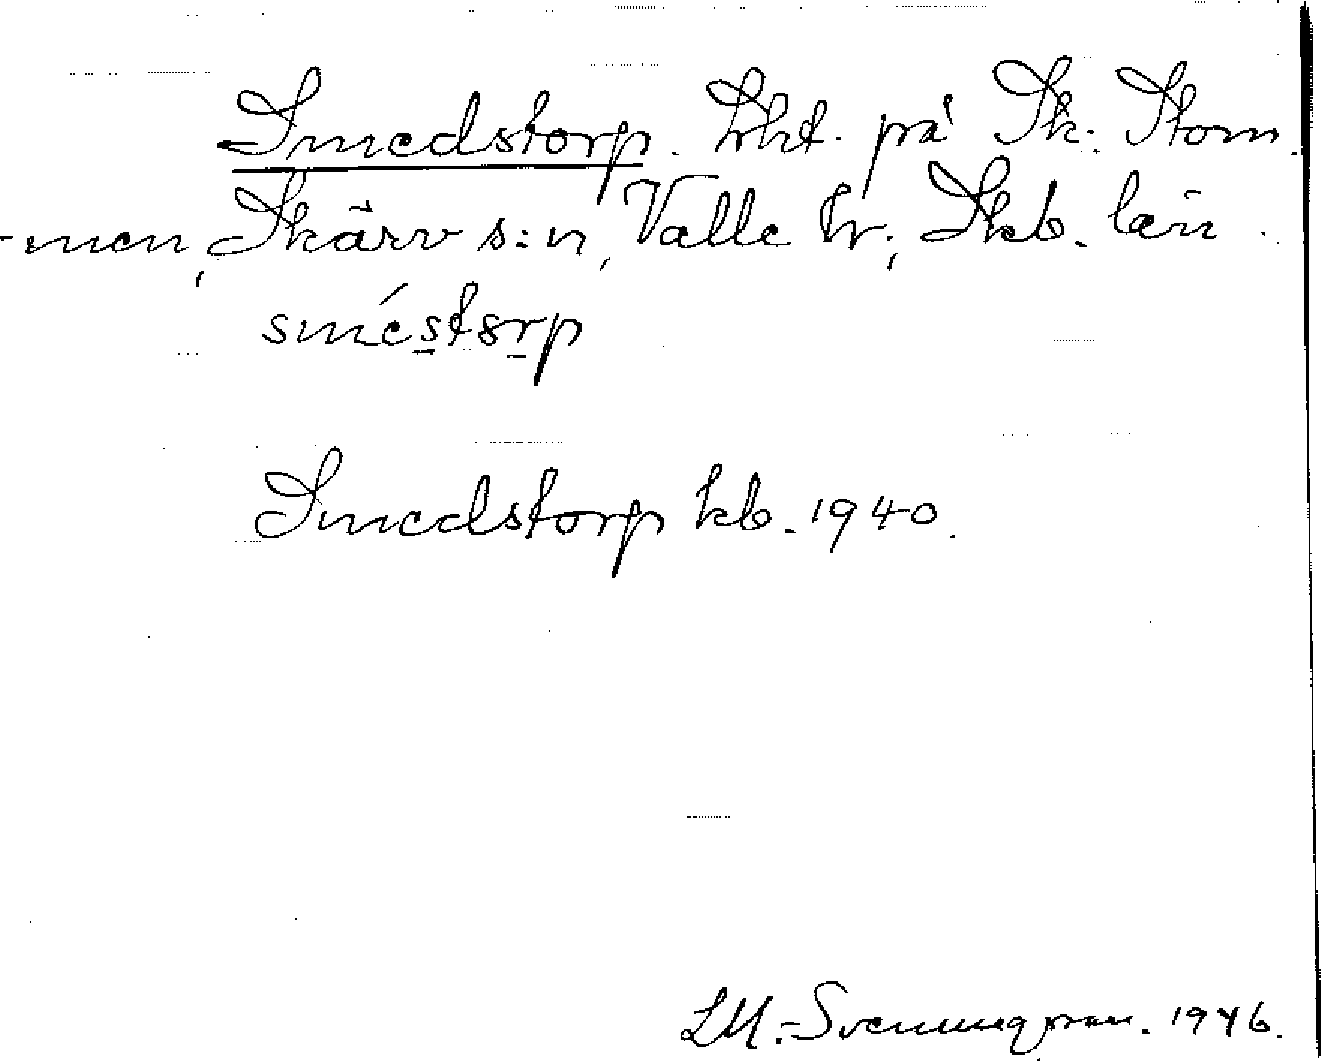 Smedstorp. Lht. på Sk. Stom.
-men, Skärv s:n, Valle hr, Skb. län.
sméstorp
Smedstorp kb. 1940.
1946.